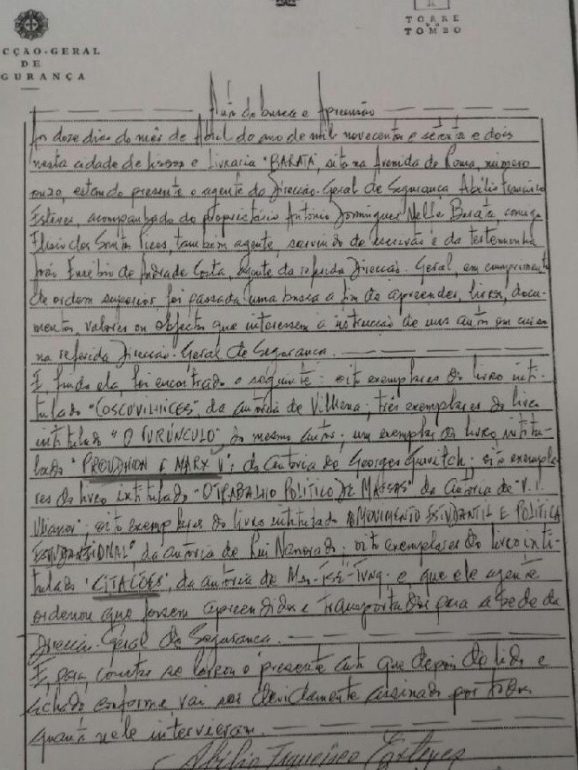 CÇÃO-GERAL
DE
GURANÇA
TORRE
DO
TOMBO
Auto de busca e Apreensão
Aos doze dias do mês de Abril do ano de mil novecentos e setenta e dois
nesta cidade de Lisboa e Livraria "BARATA", sita na Avenida de Roma, número
onze, estando presente o agente da Direcção-Geral de Segurança Abílio Francisco
Esteves, acompanhado do proprietário António Domingues Mella Barata comigo
dos Santos também agente, servindo de escrivão e da testemunha
Eusébio de Andrade Costa, agente da referida Direcção-Geral, em cumprimento
de ordem superior, foi passada uma busca a fim de apreender, livros, docu-
mentos, valores ou objectos que interessem à instrucção de uns autos em curso
na referida Direcção-Geral de Segurança.
E finda ela, foi encontrado o seguinte: oito exemplares do livro inti-
tulado "COSCUVILHICES" da autoria de Vilhena; três exemplares do livro
intitulado "O FURÚNCULO" do mesmo autor; um exemplar do livro intitu-
lado "PROUDHON E MARX" da autoria de Georges Gurvitch; oito exempla-
res do livro intitulado "O TRABALHO POLÍTICO DE MASSAS" da autoria de "V. I.
oito exemplares do livro intitulado "O MOVIMENTO ESTUDANTIL E POLÍTICA
da autoria de Rui Namorado; oito exemplares do livro inti-
tulado "CITAÇÕES", da autoria de Mao-Tsé-Tung e que ele agente
ordenou que fossem apreendidos e transportados para a sede da
Direcção-Geral de Segurança.
E, para constar se lavrou o presente auto que depois de lido e
achado conforme vai ser devidamente assinado por todos
quanto nele intervieram.
Abílio Francisco Esteves